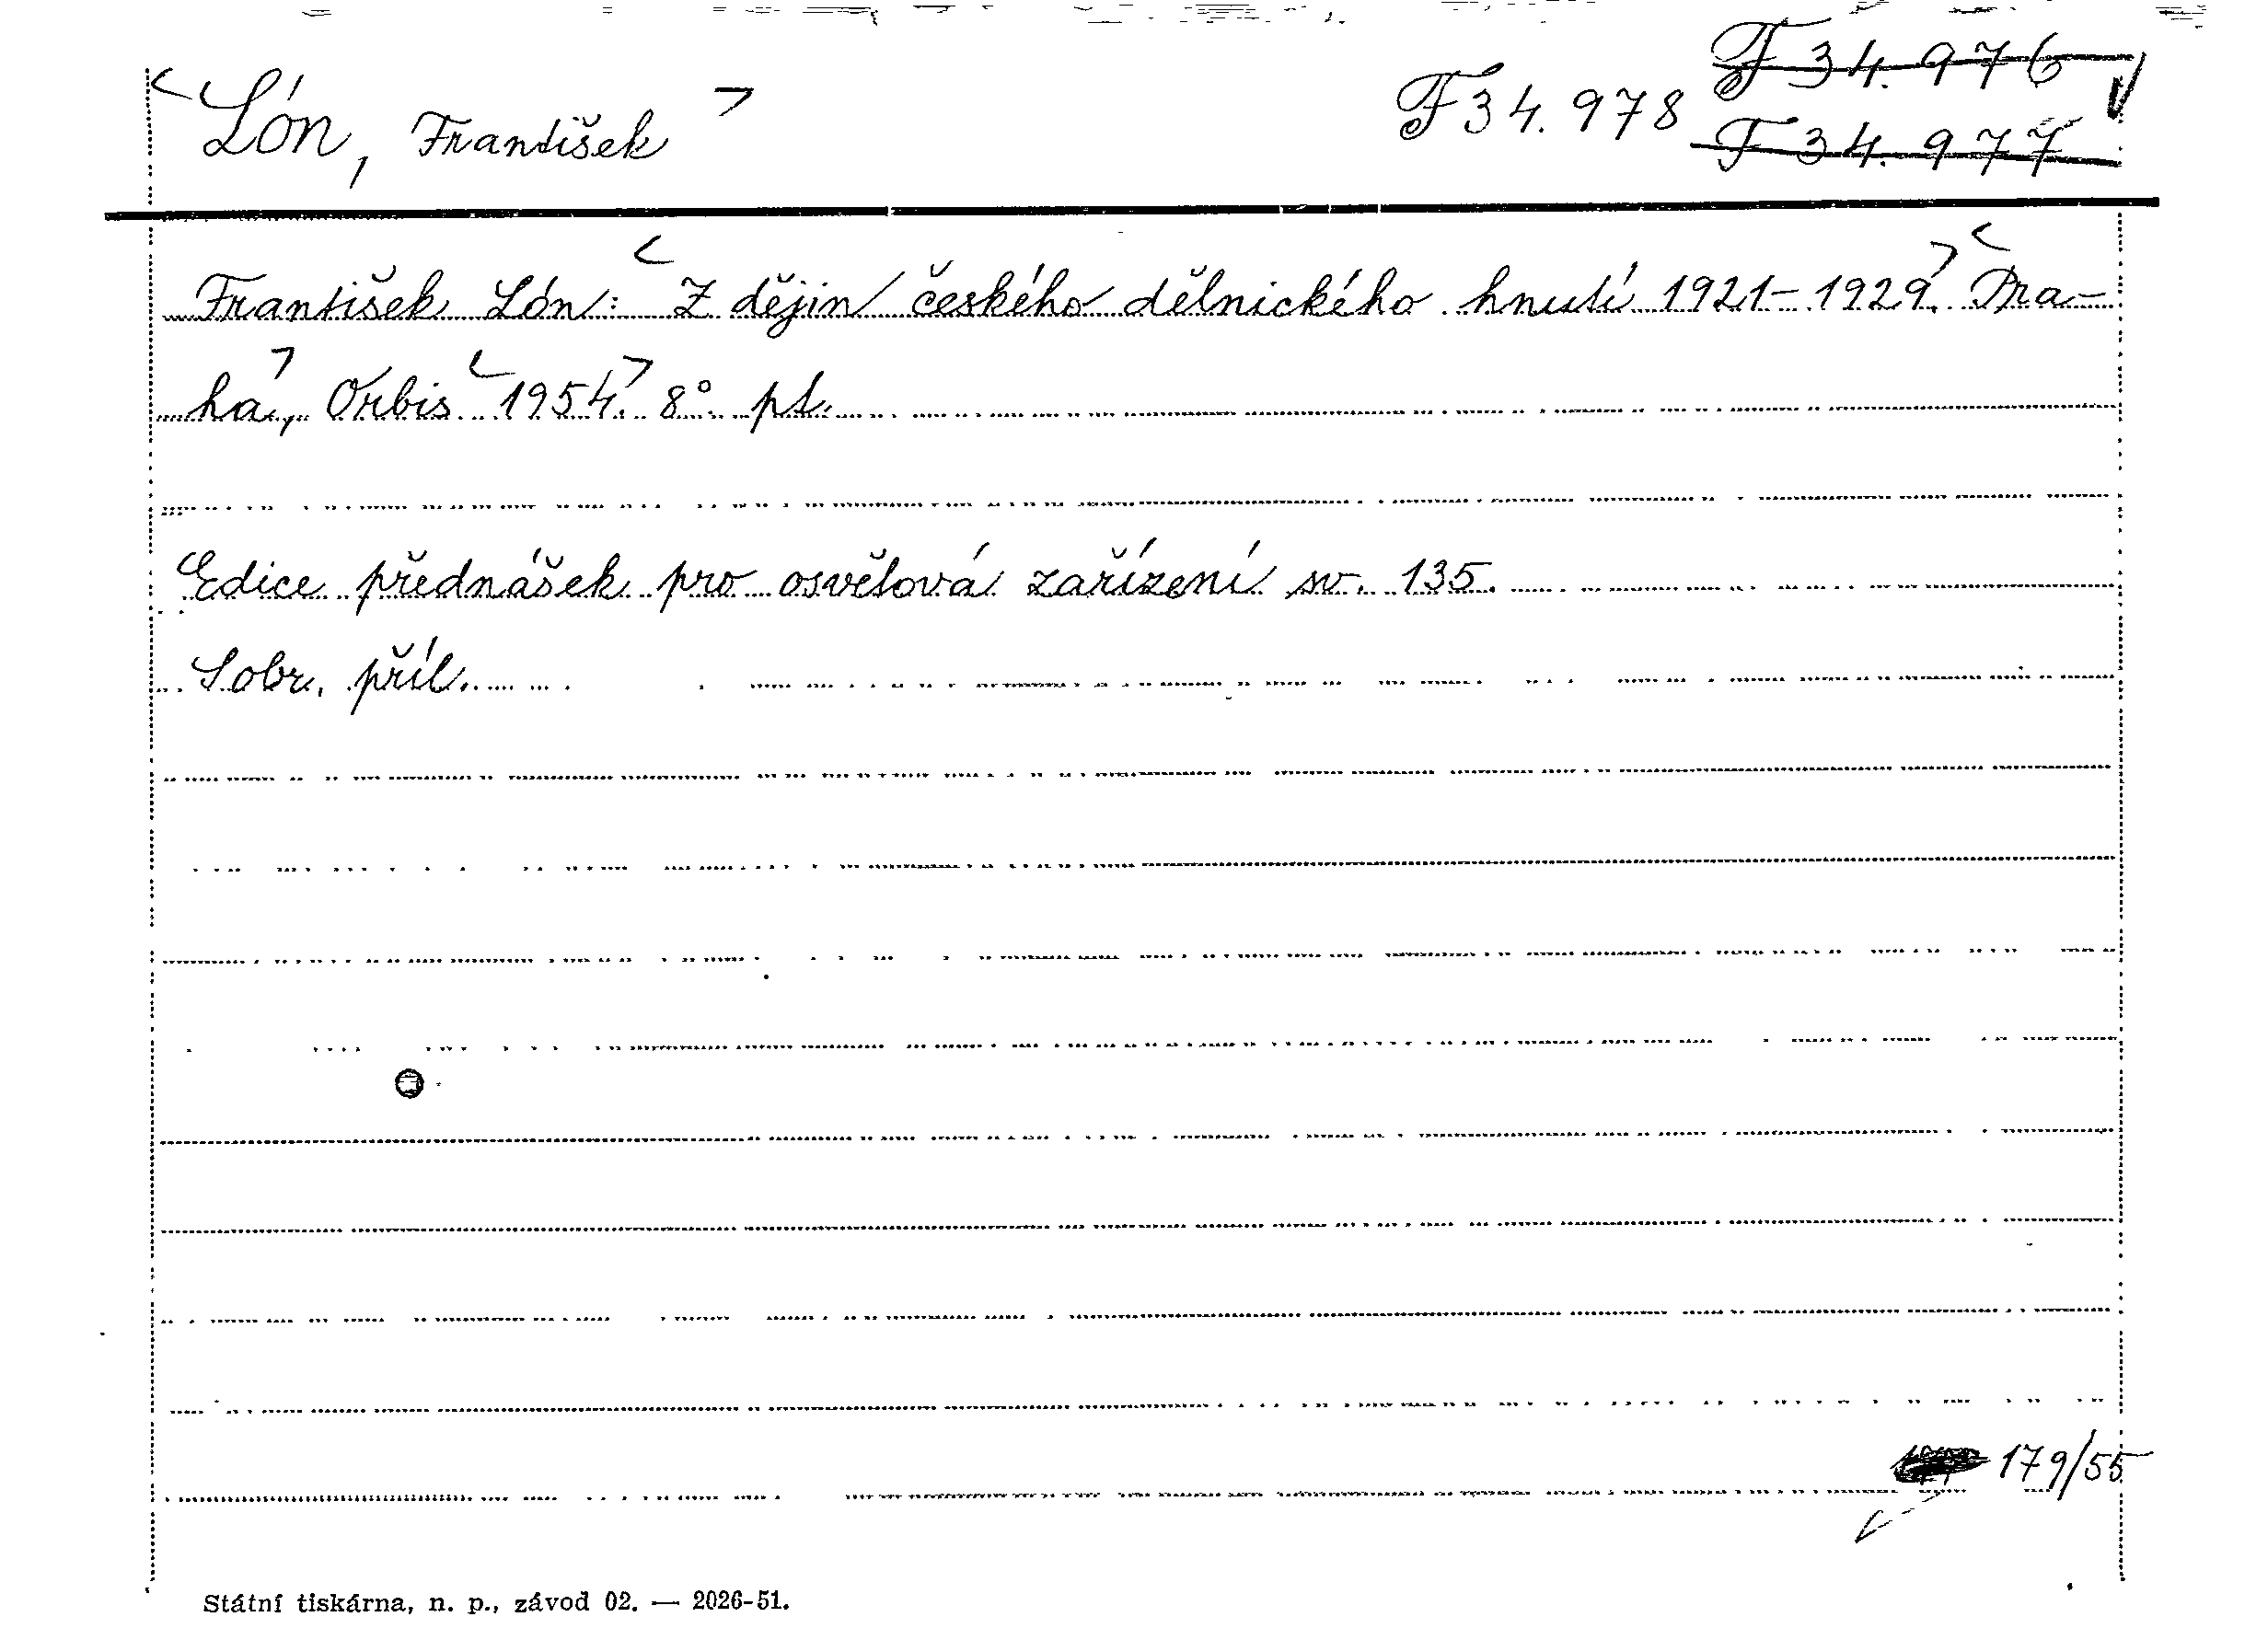 Lón, František F 34.978 F 34.976
F 34.977
František Lón: Z dějin českého dělnického hnutí 1921-1929. Pra-
ha, Orbis 1954. 8° pt.
Edice přednášek pro osvětová zařízení sv. 135.
Sobr. příl.
179/55
Státní tiskárna, n. p., závod 02. — 2026-51.